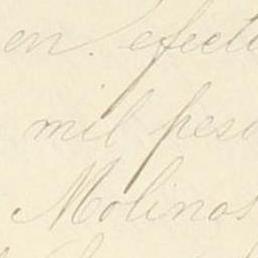 en efecti
mil peso
Molinos